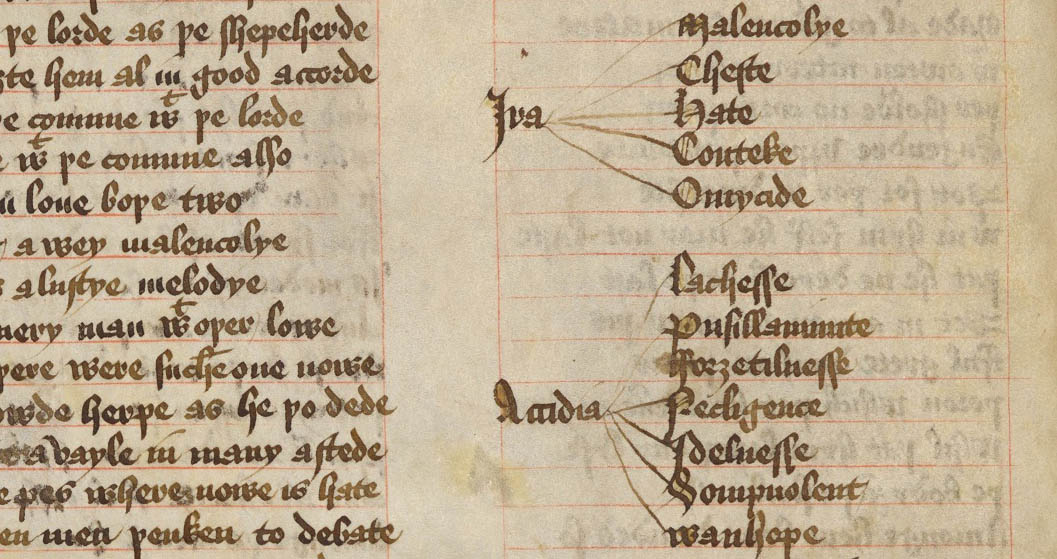 þe lorde as þe shepeherde
hem al in good accorde
comune wt þe lorde
wt þe comune also
loue boþe two
awey malencolye
a lustye melodye
man wt oþer lowe
were suche one nowe
herpe as he þo dede
avayle in many a stede
where nowe is hate
men þenken to debate
Malencolye
Cheste
Ira
Hate
Conteke
Omycide
Lachesse
Pusillamite
fforzetilnesse
Accidia
Necligence
Idelnesse
Sompnolent
wanhope